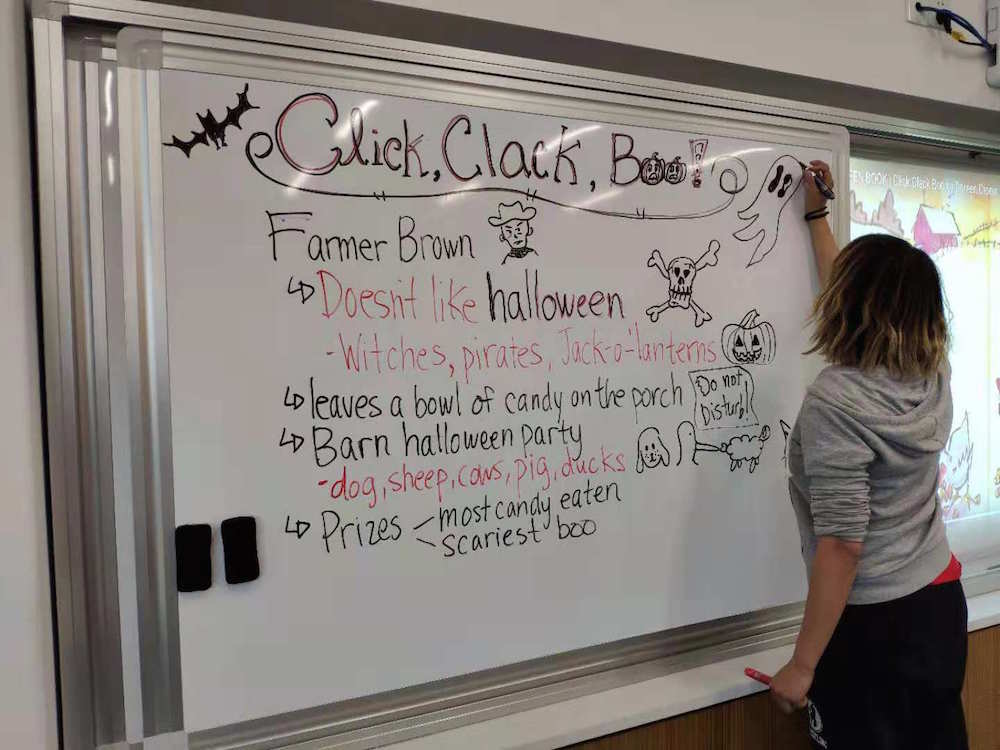 Click, Clack, Boo!
Farmer Brown
↳ Doesn't like halloween
-Witches, pirates, Jack-o'-lanterns
↳ leaves a bowl of candy on the porch
Do not
Disturb!
↳ Barn halloween party
-dog, sheep, cows, pig, ducks
↳ Prizes < most candy eaten
scariest boo
Click Clack Boo